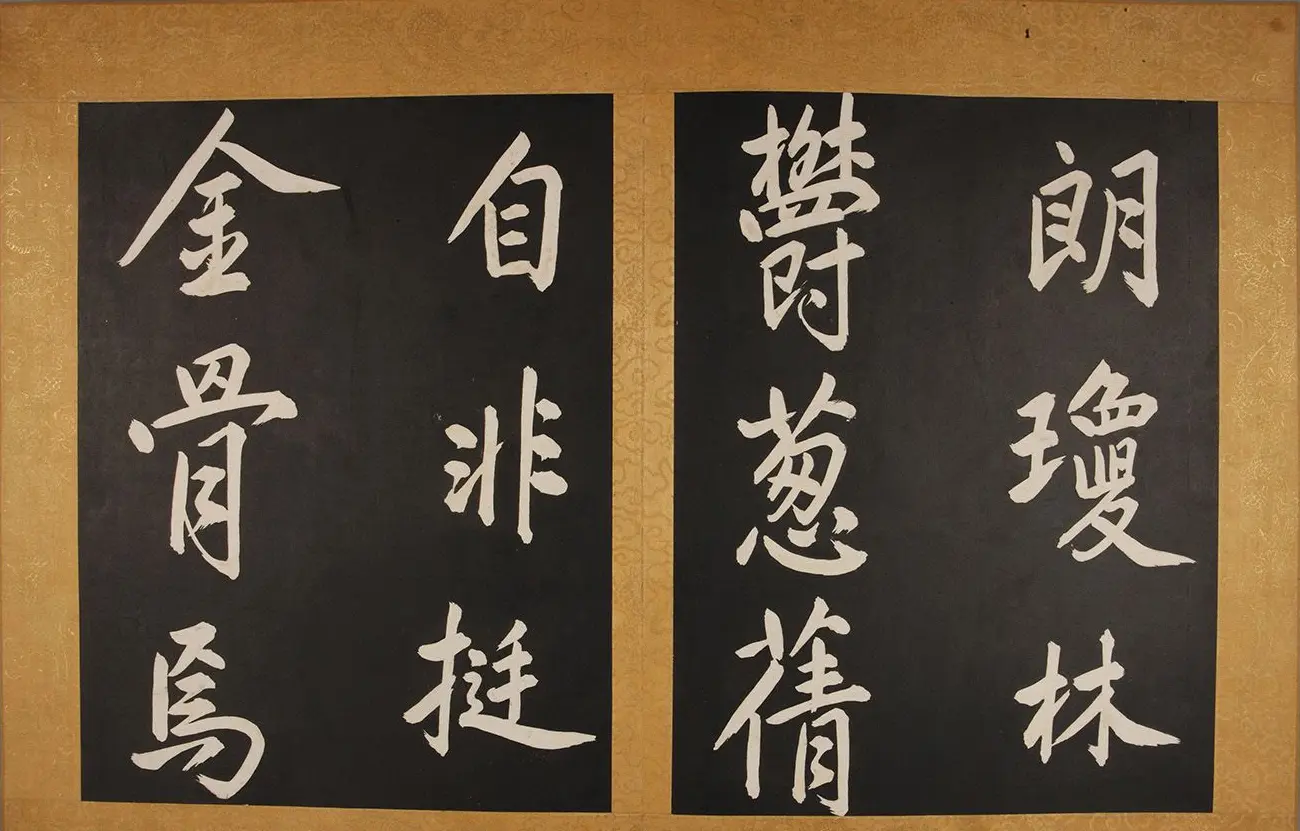 朗瓊林
欝葱蒨
自非挺
金骨焉